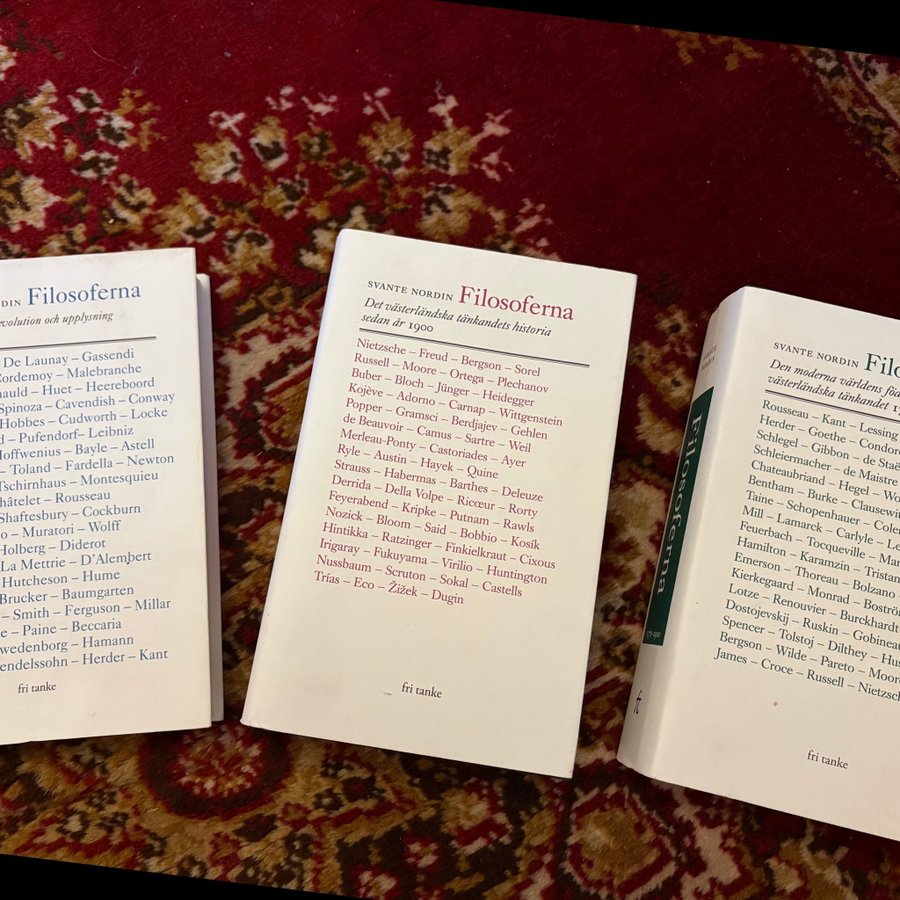 DIN Filosoferna
evolution och upplysning
De Launay – Gassendi
Cordemoy – Malebranche
nauld – Huet – Heereboord
Spinoza – Cavendish – Conway
Hobbes – Cudworth – Locke
d – Pufendorf – Leibniz
Hoffwenius – Bayle – Astell
– Toland – Fardella – Newton
Tschirnhaus – Montesquieu
hâtelet – Rousseau
Shaftesbury – Cockburn
o – Muratori – Wolff
Holberg – Diderot
La Mettrie – D'Alembert
Hutcheson – Hume
Brucker – Baumgarten
– Smith – Ferguson – Millar
e – Paine – Beccaria
wedenborg – Hamann
endelssohn – Herder – Kant
fri tanke
SVANTE NORDIN Filosoferna
Det västerländska tänkandets historia
sedan år 1900
Nietzsche – Freud – Bergson – Sorel
Russell – Moore – Ortega – Plechanov
Buber – Bloch – Jünger – Heidegger
Kojève – Adorno – Carnap – Wittgenstein
Popper – Gramsci – Berdjajev – Gehlen
de Beauvoir – Camus – Sartre – Weil
Merleau-Ponty – Castoriades – Ayer
Ryle – Austin – Hayek – Quine
Strauss – Habermas – Barthes – Deleuze
Derrida – Della Volpe – Ricœur – Rorty
Feyerabend – Kripke – Putnam – Rawls
Nozick – Bloom – Said – Bobbio – Kosík
Hintikka – Ratzinger – Finkielkraut – Cixous
Irigaray – Fukuyama – Virilio – Huntington
Nussbaum – Scruton – Sokal – Castells
Trías – Eco – Žižek – Dugin
fri tanke
SVANTE
NORDIN
Filosoferna
ft
SVANTE NORDIN Filo
Den moderna världens föd
västerländska tänkandet 1
Rousseau – Kant – Lessing
Herder – Goethe – Condor
Schlegel – Gibbon – de Staë
Schleiermacher – de Maistre
Chateaubriand – Hegel – Wo
Bentham – Burke – Clausewit
Taine – Schopenhauer – Coler
Mill – Lamarck – Carlyle – Le
Feuerbach – Tocqueville – Mar
Hamilton – Karamzin – Tristan
Emerson – Thoreau – Bolzano
Kierkegaard – Monrad – Boströ
Lotze – Renouvier – Burckhardt
Dostojevskij – Ruskin – Gobineau
Spencer – Tolstoj – Dilthey – Hus
Bergson – Wilde – Pareto – Moore
James – Croce – Russell – Nietzsch
fri tanke